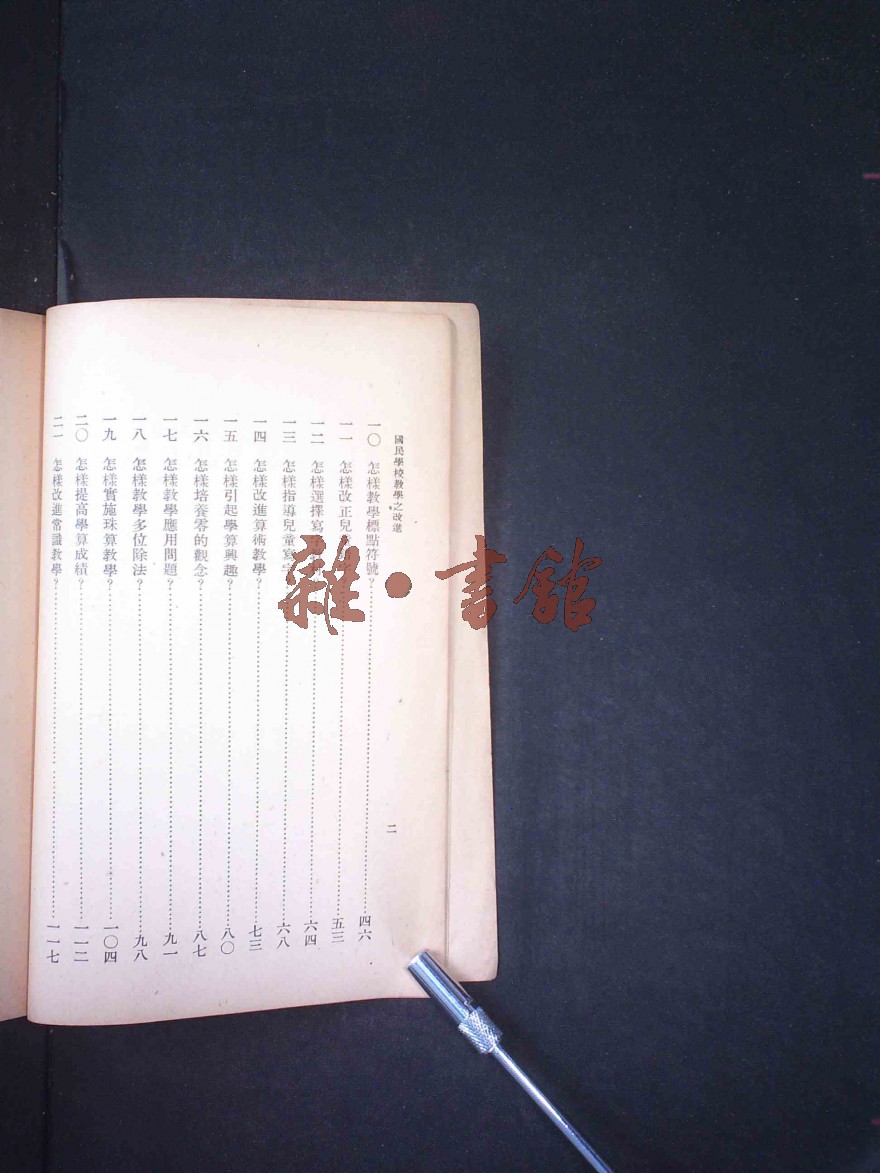 國民學校教學之改進
二
一〇 怎樣教學標點符號？ 四六
一一 怎樣改正兒 五三
一二 怎樣選擇寫 六四
一三 怎樣指導兒童寫字 六八
一四 怎樣改進算術教學？ 七三
一五 怎樣引起學算興趣？ 八〇
一六 怎樣培養零的觀念？ 八七
一七 怎樣教學應用問題？ 九一
一八 怎樣教學多位除法？ 九八
一九 怎樣實施珠算教學？ 一〇四
二〇 怎樣提高學算成績？ 一一二
二一 怎樣改進常識教學？ 一一七
雜·書館